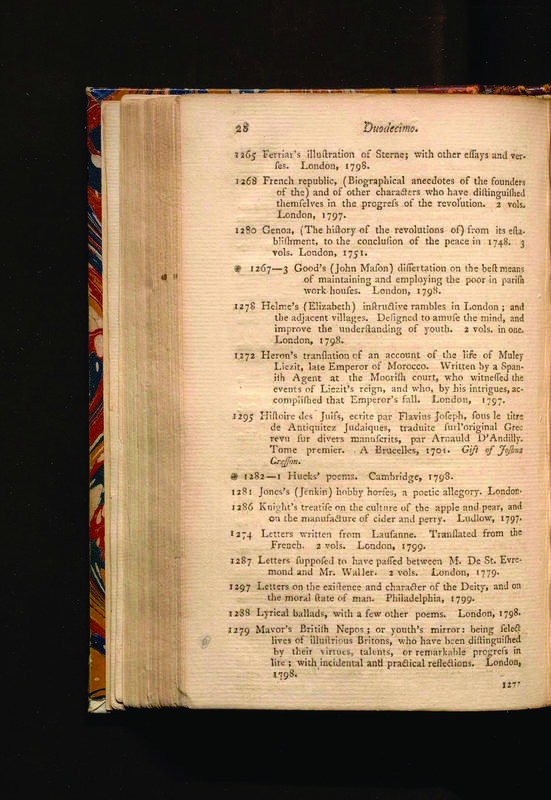 28 Duodecimo.
1265 Ferriar's illuſtration of Sterne; with other eſſays and ver-
ſes. London, 1798.
1268 French republic, (Biographical anecdotes of the founders
of the) and of other characters who have diſtinguiſhed
themſelves in the progreſs of the revolution. 2 vols.
London, 1797.
1280 Genoa, (The hiſtory of the revolutions of) from its eſta-
bliſhment, to the concluſion of the peace in 1748. 3
vols. London, 1751.
* 1267—3 Good's (John Maſon) diſſertation on the beſt means
of maintaining and employing the poor in pariſh
work-houſes. London, 1798.
1278 Helme's (Elizabeth) inſtructive rambles in London; and
the adjacent villages. Deſigned to amuſe the mind, and
improve the underſtanding of youth. 2 vols. in one.
London, 1798.
1272 Heron's tranſlation of an account of the life of Muley
Liezit, late Emperor of Morocco. Written by a Span-
iſh Agent at the Mooriſh court, who witneſſed the
events of Liezit's reign, and who, by his intrigues, ac-
compliſhed that Emperor's fall. London, 1797.
1295 Hiſtoire des Juifs, ecrite par Flavius Joſeph, ſous le titre
de Antiquitez Judaiques, traduite ſurl'original Grec
revu ſur divers manuſcrits, par Arnauld D'Andilly.
Tome premier. A Brucelles, 1701. Gift of Joſhua
Greſſon.
* 1282—1 Hucks' poems. Cambridge, 1798.
1281 Jones's (Jenkin) hobby horſes, a poetic allegory. London.
1286 Knight's treatiſe on the culture of the apple and pear, and
on the manufacture of cider and perry. Ludlow, 1797.
1274 Letters written from Lauſanne. Tranſlated from the
French. 2 vols. London, 1799.
1287 Letters ſuppoſed to have paſſed between M. De St. Evre-
mond and Mr. Waller. 2 vols. London, 1779.
1297 Letters on the exiſtence and character of the Deity, and on
the moral ſtate of man. Philadelphia, 1799.
1288 Lyrical ballads, with a few other poems. London, 1798.
1279 Mavor's Britiſh Nepos; or youth's mirror: being ſelect
lives of illuſtrious Britons, who have been diſtinguiſhed
by their virtues, talents, or remarkable progreſs in
life; with incidental and practical reflections. London,
1798.